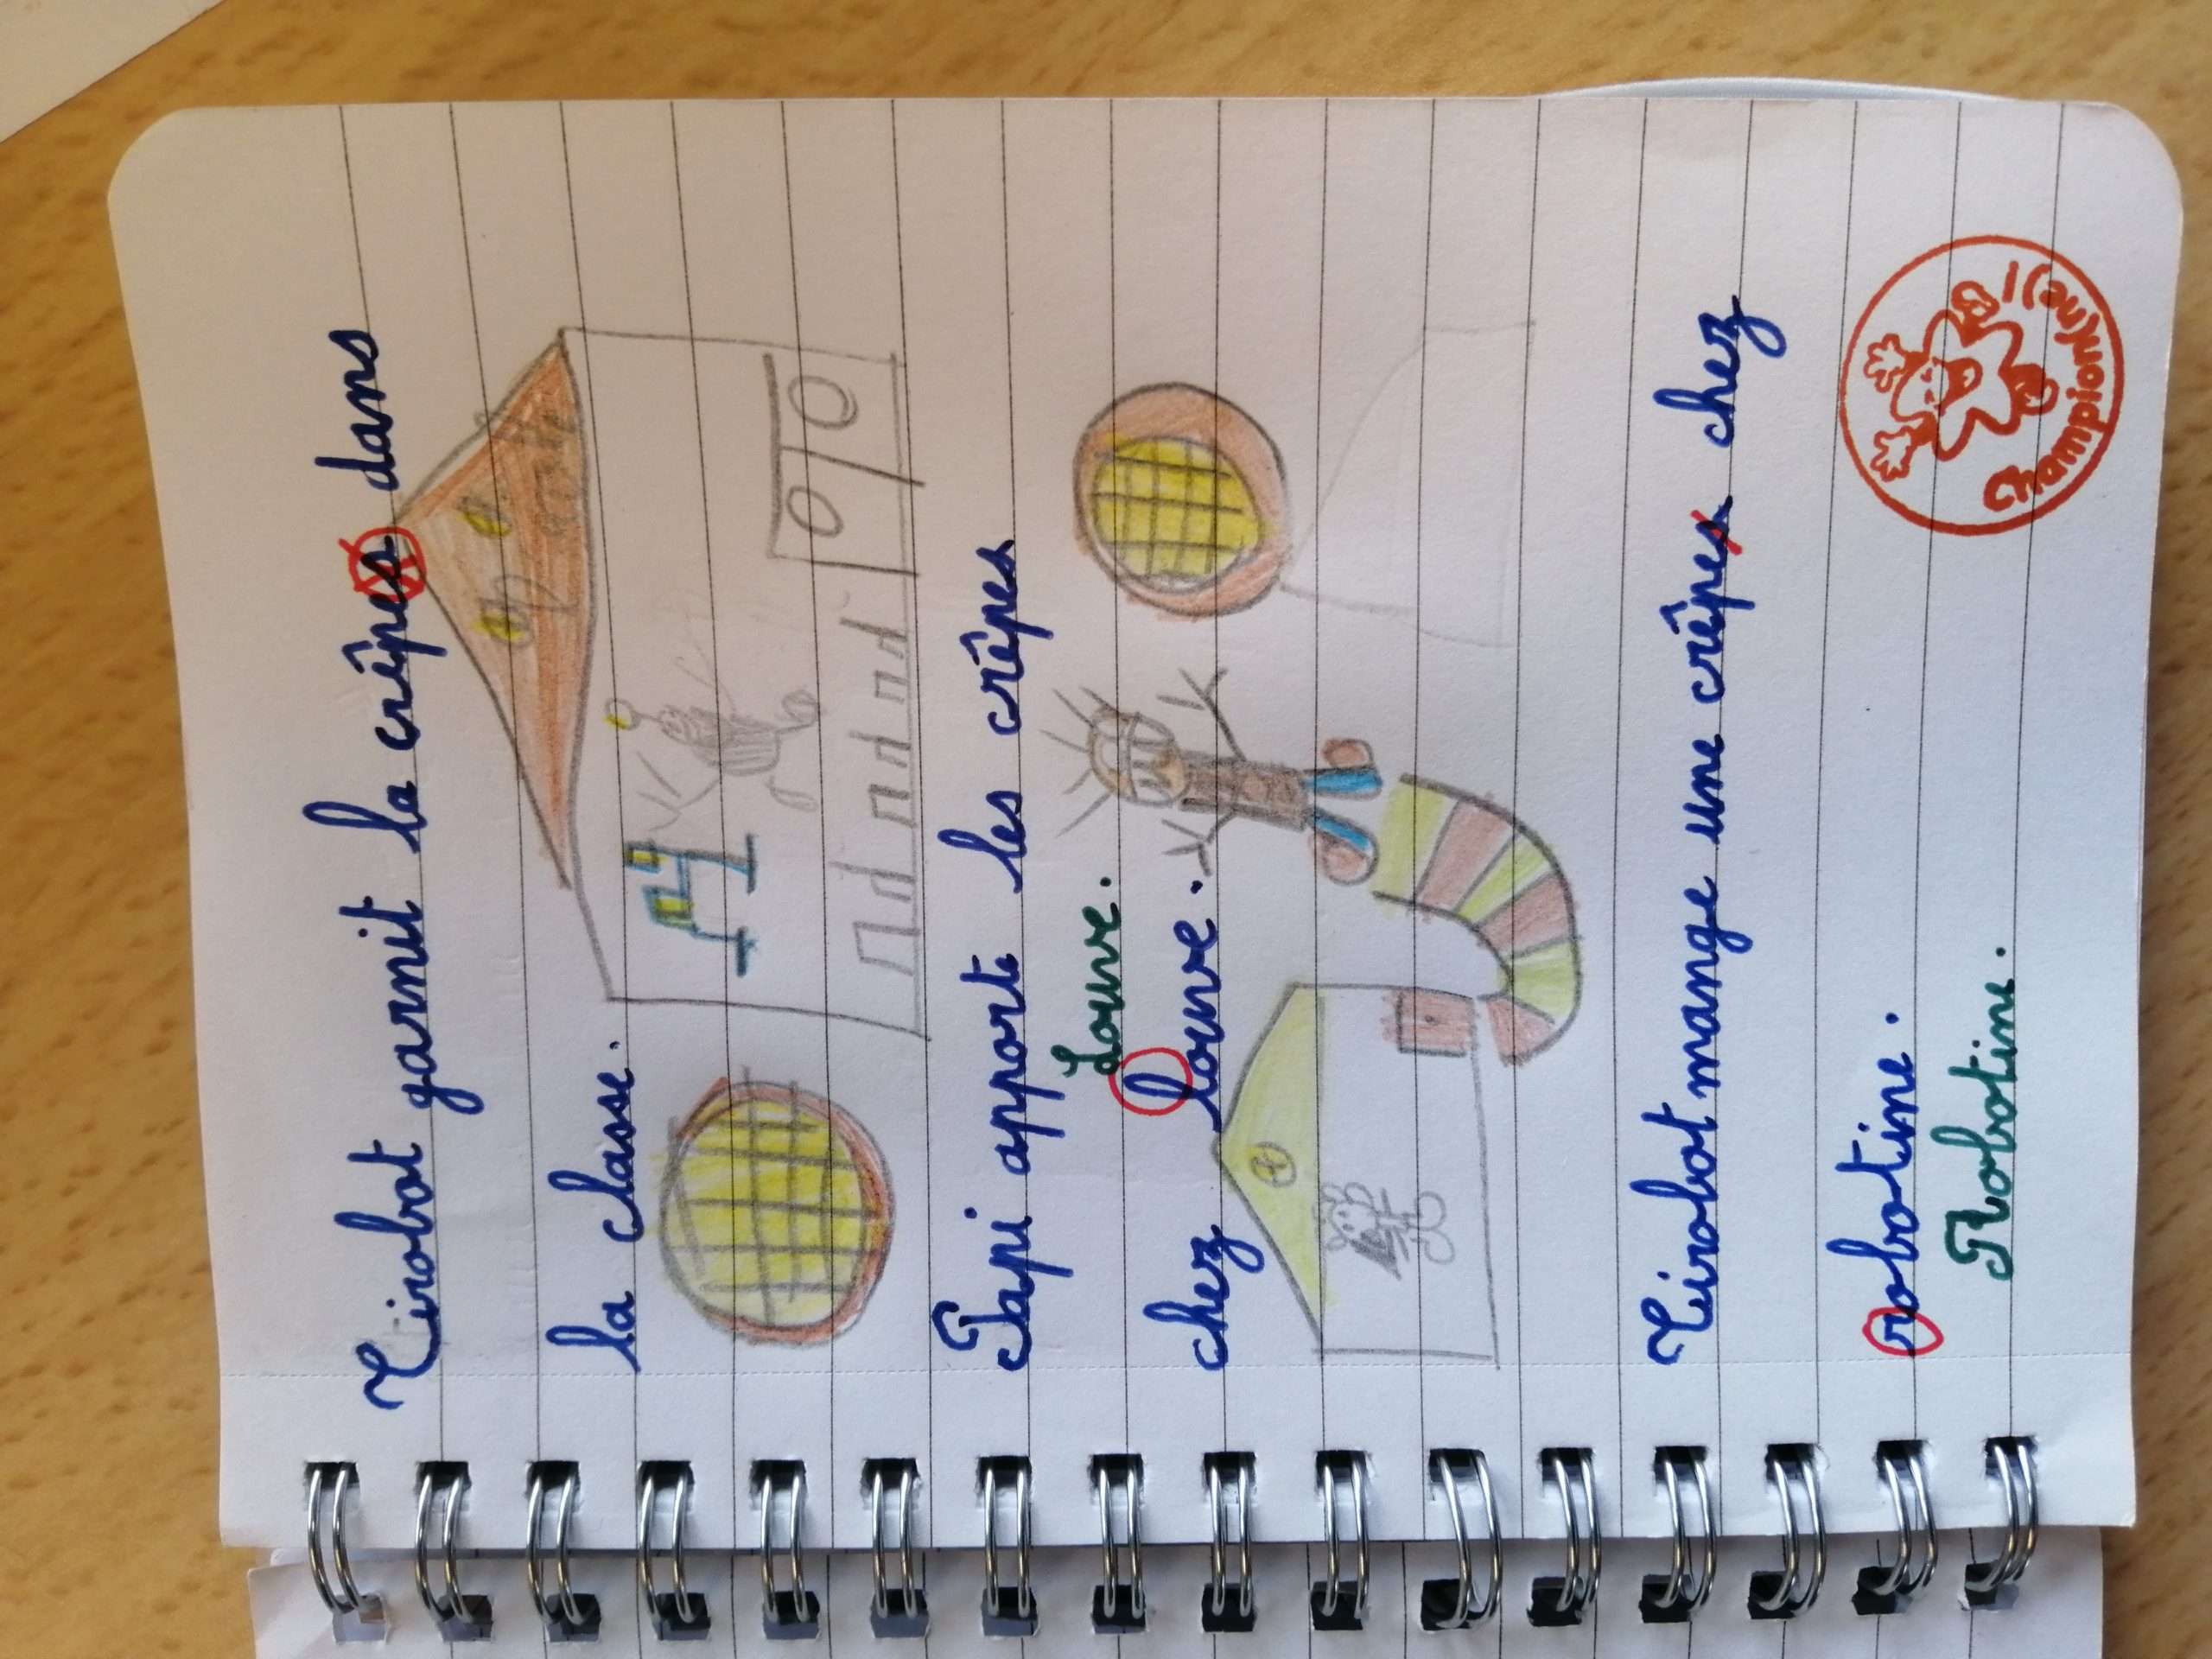 Tirobot garnit la crêpes dans
la classe.
Papi apport les crêpes
Louve.
chez louve.
Tirobot mange une crêpes chez
robotine.
Robotine.
Champion(ne)!